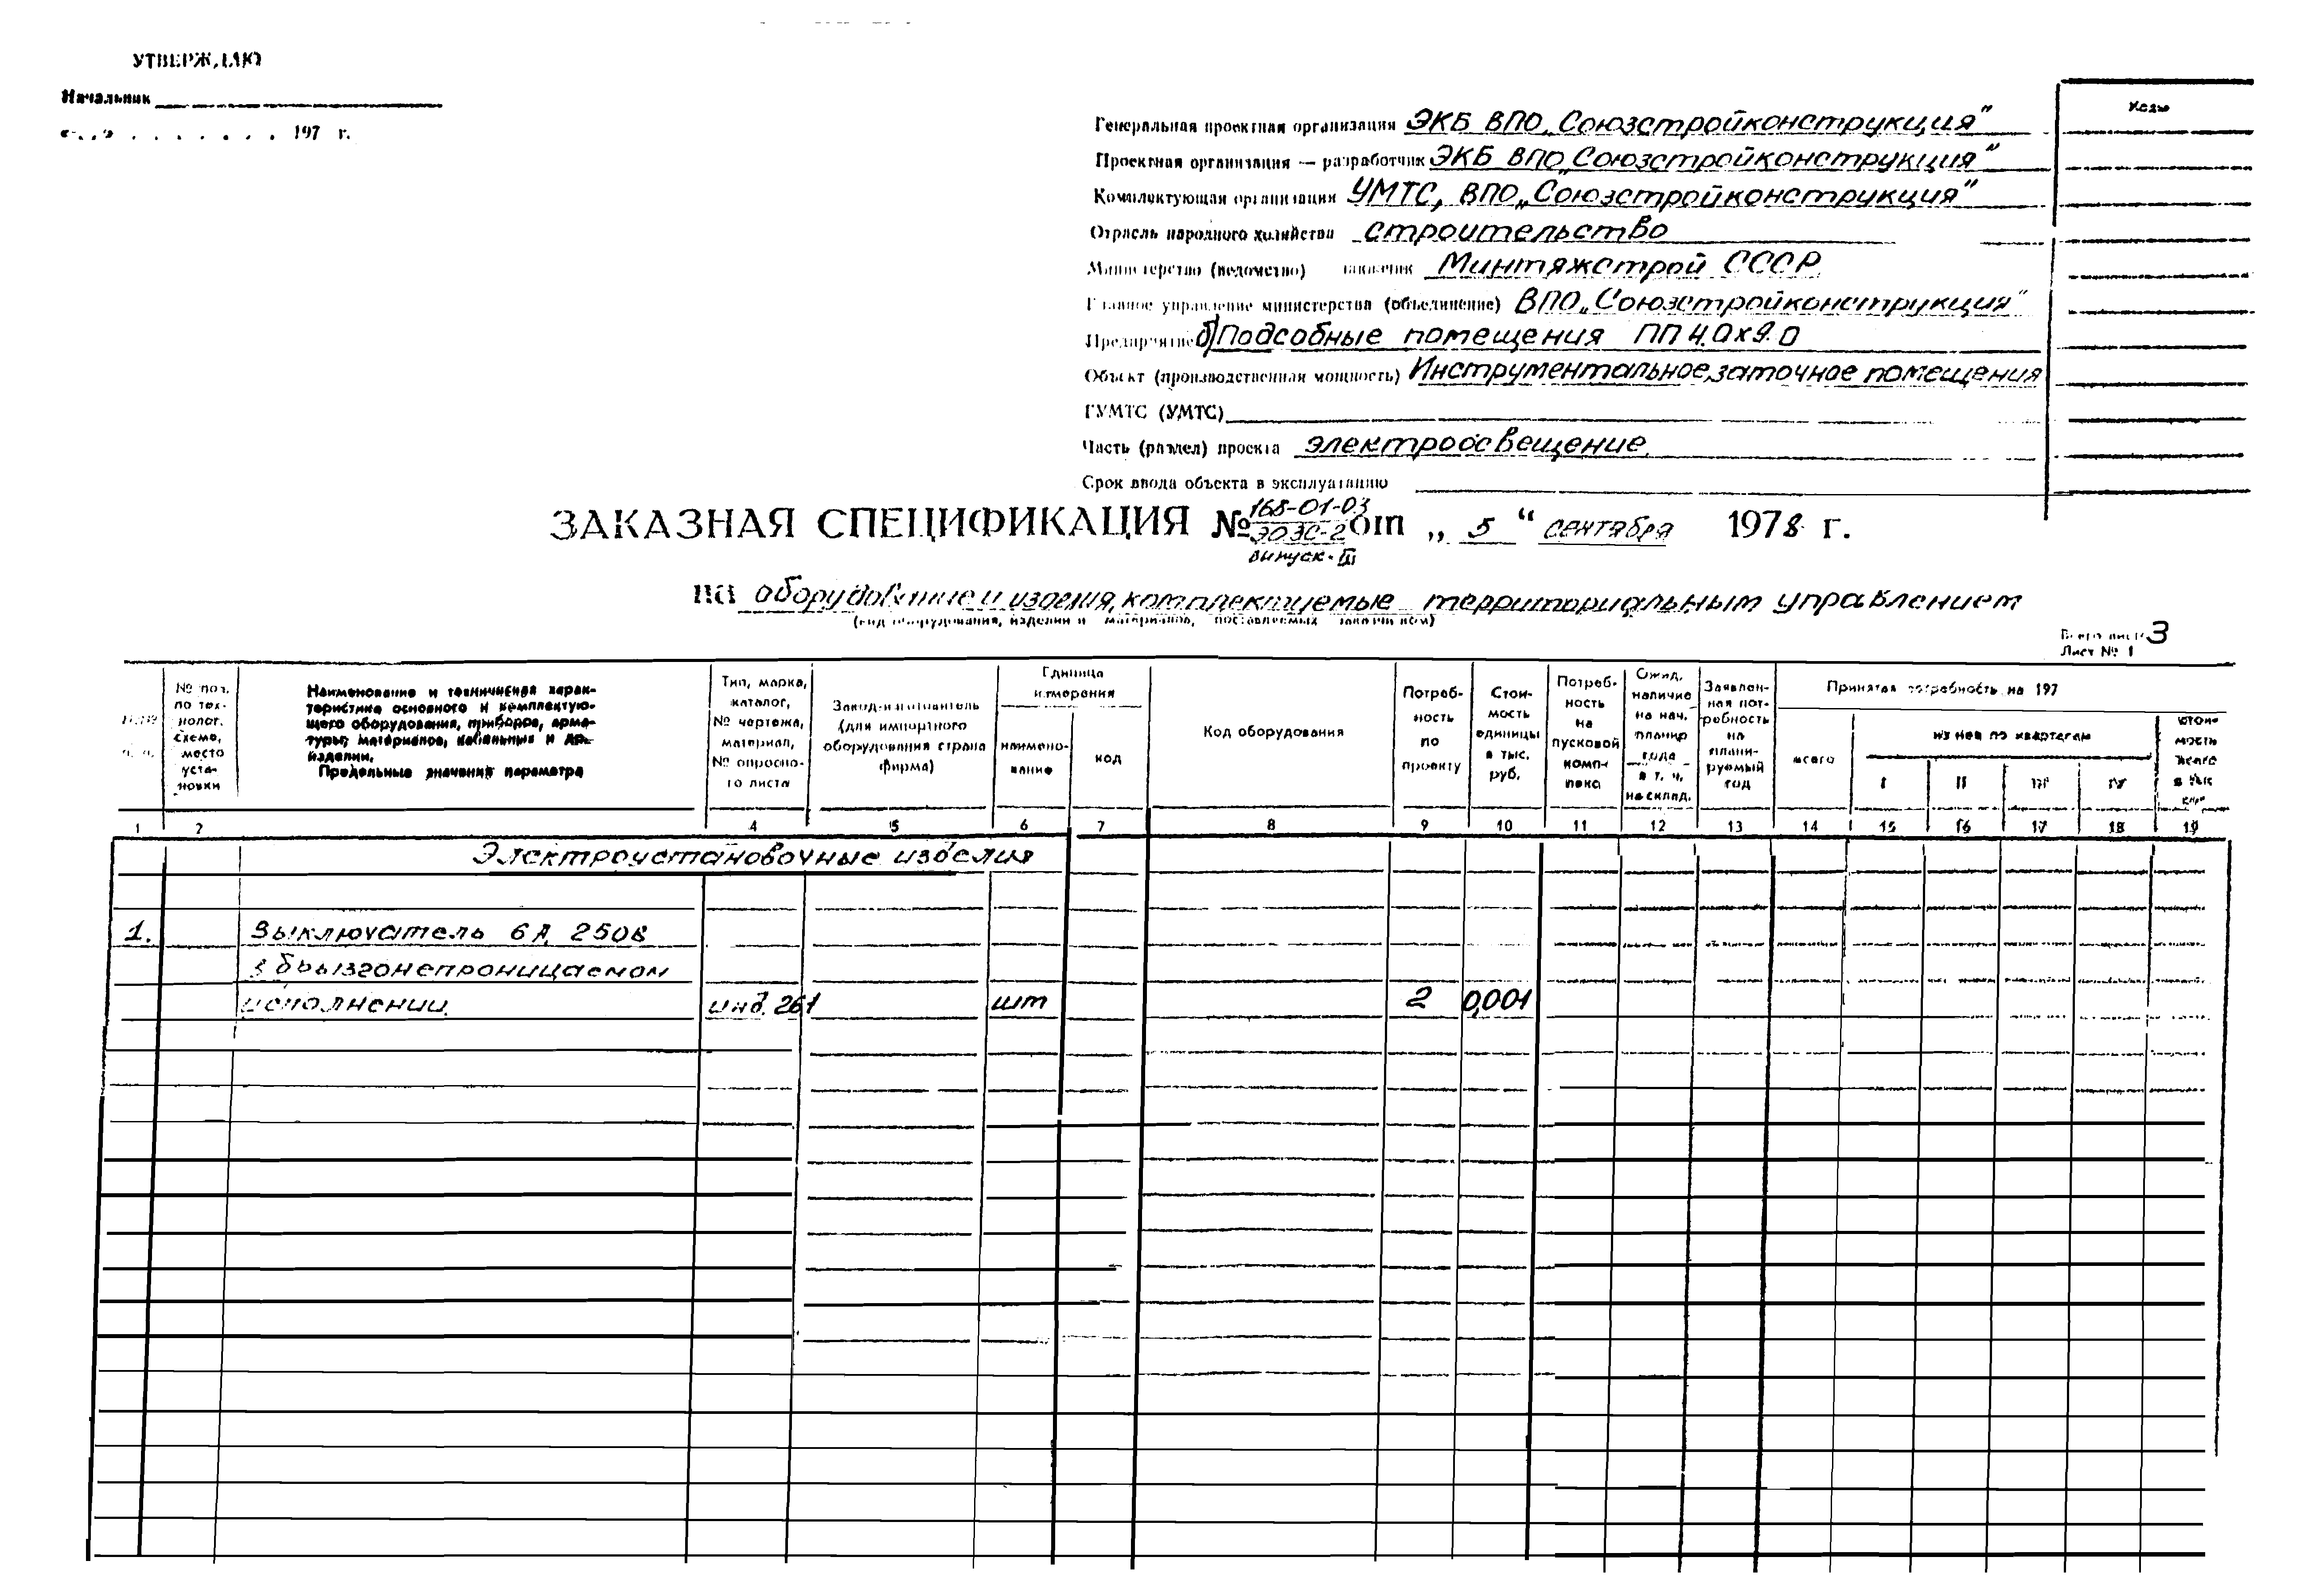 УТВЕРЖДАЮ
Начальник
197 г.
Коды
Генеральная проектная организация ЭКБ ВПО „Союзстройконструкция"
Проектная организация — разработчик ЭКБ ВПО „Союзстройконструкция"
Комплектующая организация УМТС, ВПО „Союзстройконструкция"
Отрасль народного хозяйства строительство
Министерство (ведомство) заказчик Минтяжстрой СССР
Главное управление министерства (объединение) ВПО „Союзстройконструкция"
Предприятие б) Подсобные помещения ПП 4.0х9.0
Объект (производственная мощность) Инструментальное, заточное помещения
ГУМТС (УМТС)
Часть (раздел) проекта электроосвещение
Срок ввода объекта в эксплуатацию
ЗАКАЗНАЯ СПЕЦИФИКАЦИЯ № 168-01-03 ЭОЗС-2 выпуск-III от „ 5 " сентября 1978 г.
на оборудование и изделия, комплектуемые территориальным управлением
(вид оборудования, изделий и материалов, поставляемых заказчиком)
Всего листов 3
Лист № 1
№ поз. по технолог. схеме, место установки
Наименование и техническая характеристика основного и комплектующего оборудования, приборов, арматуры, материалов, кабельных и др. изделий.
Предельные значения параметра
Тип, марка, каталог, № чертежа, материал, № опросного листа
Завод-изготовитель (для импортного оборудования страна фирма)
Единица измерения
наименование
код
Код оборудования
Потребность по проекту
Стоимость единицы в тыс. руб.
Потребность на пусковой комплекс
Ожид. наличие на нач. планир года в т. ч. на склад.
Заявленная потребность на планируемый год
Принятая потребность на 197
всего
из нее по кварталам
I II III IV
стоимость всего в тыс руб
1 2 4 5 6 7 8 9 10 11 12 13 14 15 16 17 18 19
Электроустановочные изделия
1. Выключатель 6А 250В
в брызгонепроницаемом
исполнении инд. 261 шт 2 0,001